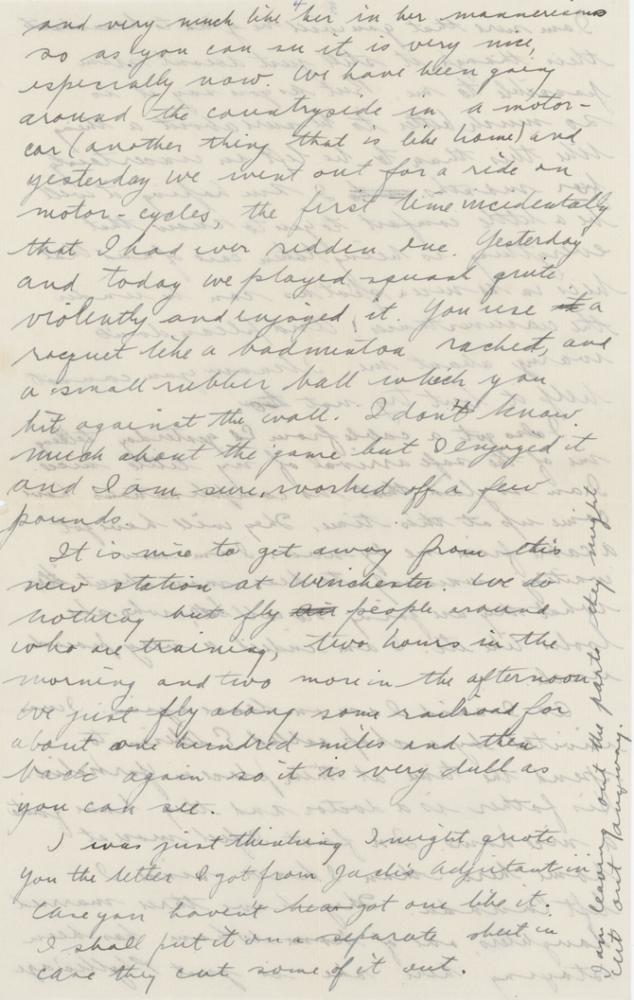 4
and very much like her in her mannerisms
so as you can su it is very nice,
especially now. We have been going
around the countryside in a motor-
car (another thing that is like home) and
yesterday we went out for a ride on
motor-cycles, the first time incidentally
that I had ever ridden one. Yesterday
and today we played squash quite
violently and enjoyed it. You use a
racquet like a badminton racket, and
a small rubber ball which you
hit against the wall. I don't know
much about the game but I enjoyed it
and I am sure, worked off a few
pounds.
It is nice to get away from this
new station at Winchester. We do
nothing but fly people around
who are training, two hours in the
morning and two more in the afternoon.
We just fly along some railroad for
about one hundred miles and then
back again so it is very dull as
you can see.
I was just thinking I might quote
you the letter I got from Jack's Adjutant in
case you havent got one like it.
I shall put it on a separate sheet in
case they cut some of it out.
I am leaving out the parts they might
cut out anyway.